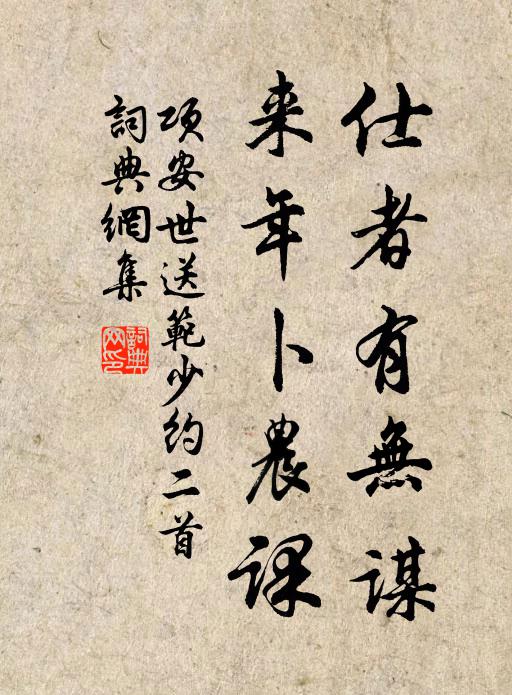 仕者有無謀
来年卜農課
项安世送範少約二首
詞典網集
詞典网印